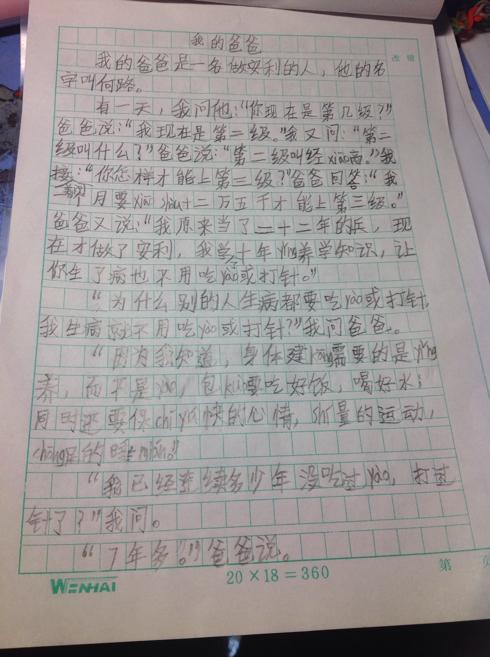 我的爸爸
我的爸爸是一名做安利的人，他的名
字叫何路。
有一天，我问他：“你现在是第几级？”
爸爸说：“我现在是第二级。”我又问：“第二
级叫什么？”爸爸说：“第二级叫经xiāo商。”我
接：“你怎样才能上第三级？”爸爸回答：“我
每个月要xiāo shòu十二万五千才能上第三级。”
爸爸又说：“我原来当了二十二年的兵，现
在才做了安利，我学十年yíng养学知识，让
你生了病也不用吃yào或打针。”
“为什么别的人生病都要吃yào或打针，
我生病就不用吃yào或打针？”我问爸爸。
“因为我知道，身体建kāng需要的是yíng
养，而不是yào，包kuò要吃好饭，喝好水；
同时还要保chí愉快的心情，适量的运动，
chōng足的睡mián。”
“我已经连续多少年没吃过yào，打过
针了？”我问。
“7年多。”爸爸说。
WENHAI
20×18=360
第 页